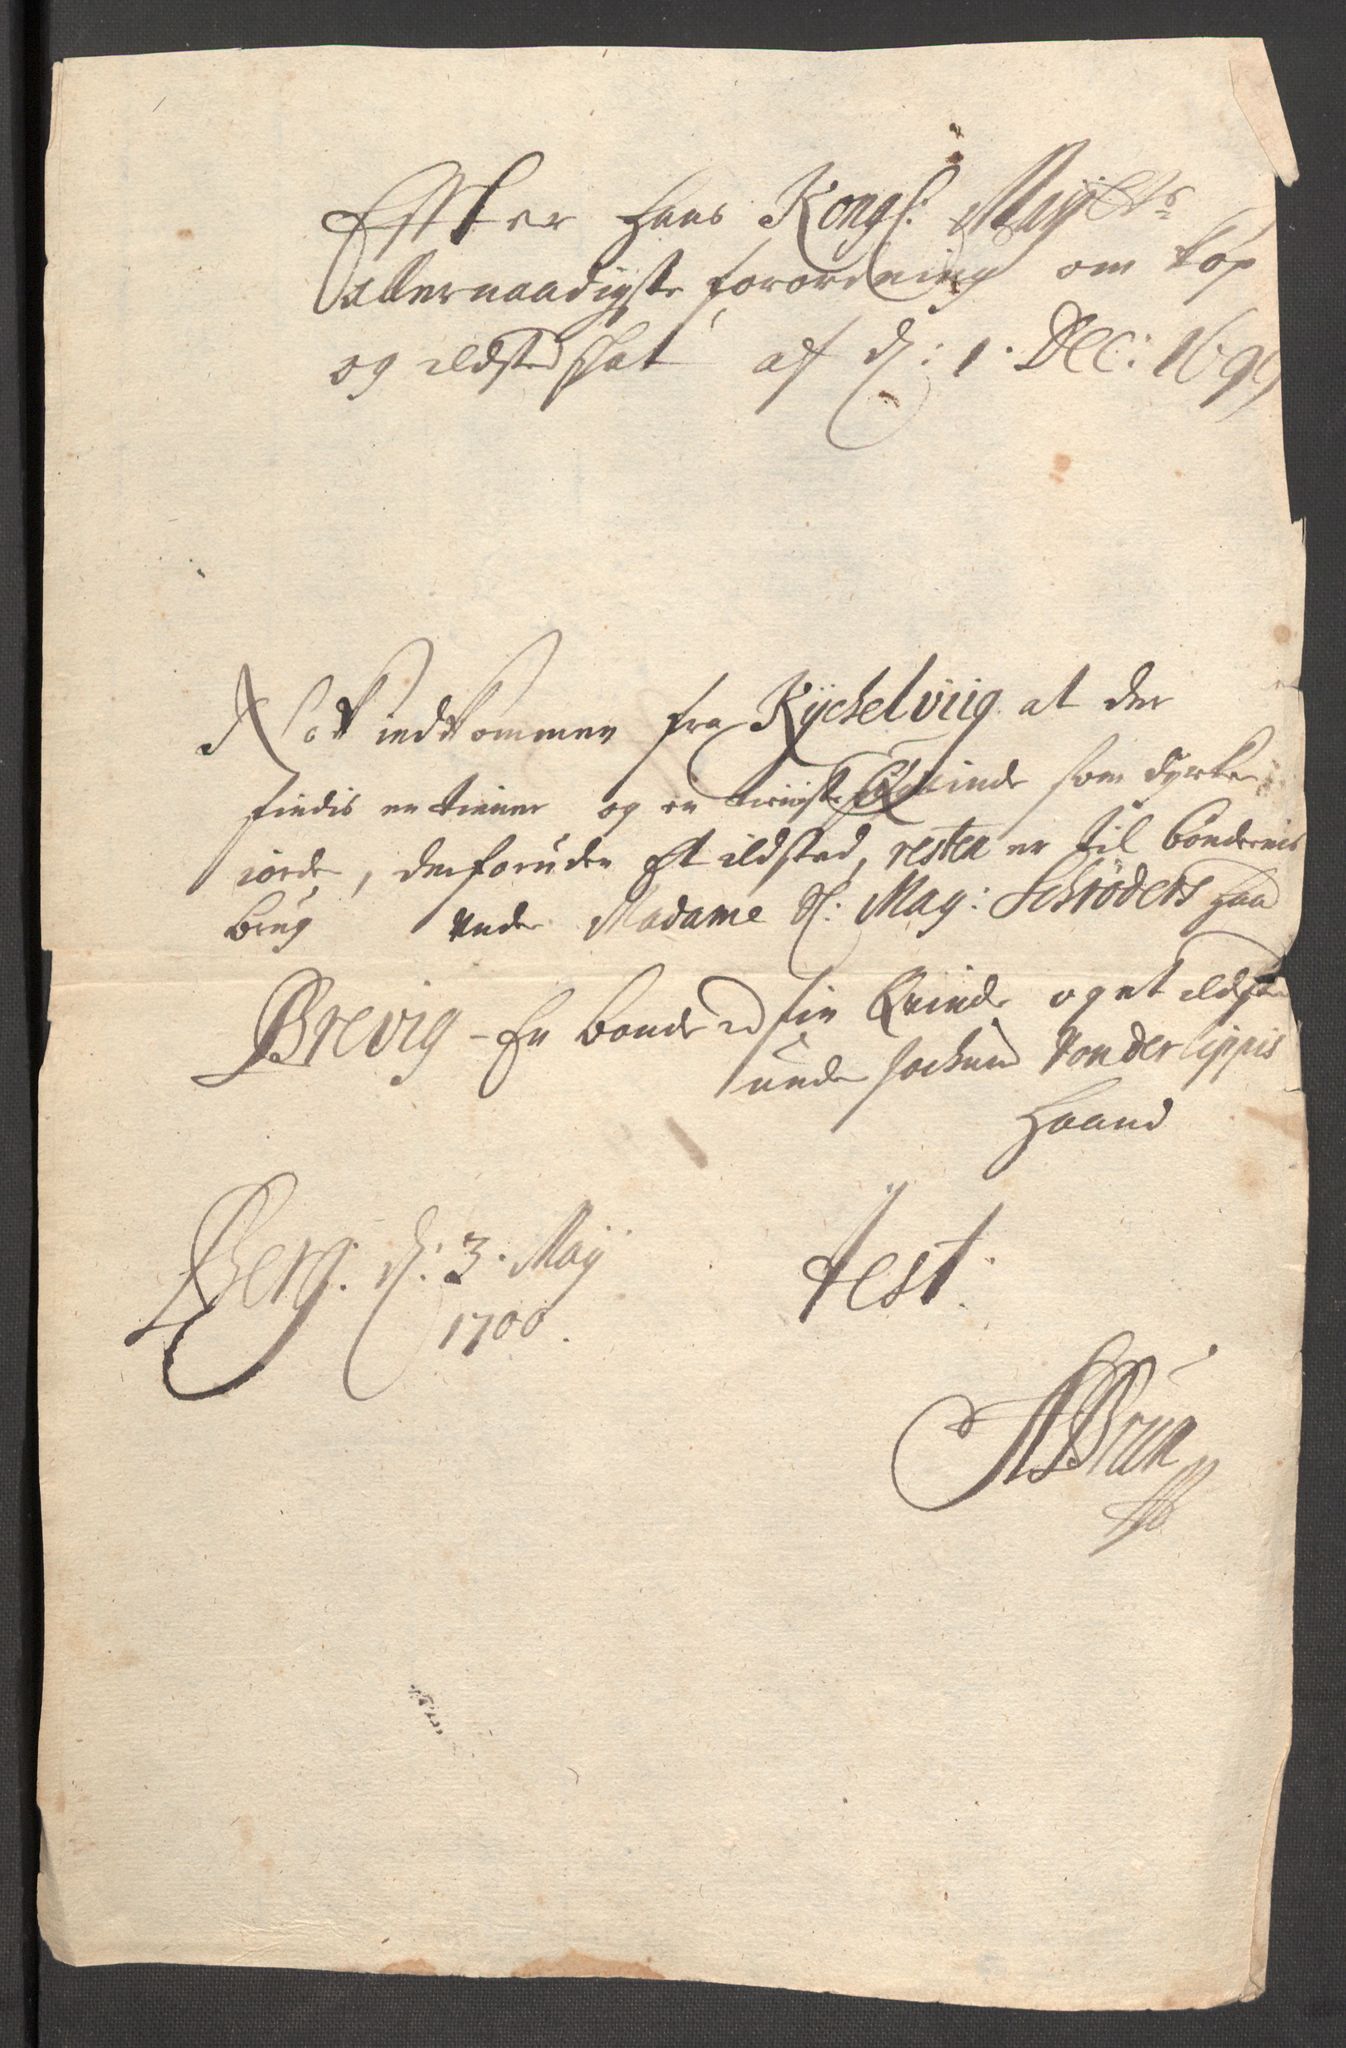 Effter Hans Kongl: Maÿtts
allernaadigste forordning om Kop
og ildsted skat af d: 1. Dec: 1699
Er indkommen fra Kÿchelviig at der
findis en tiener og en tieniste Qvinde som dyrker
iorde, derforuden Et ildsted, resten er til bøndernis
brug under Madame Sl: Mag: Schrøders Haa
Brevig - En bonde med sin Qvinde og et ildsted
under Jochum Vonderlippis
Haand
Berg. d: 3. Maÿ
1700.
test.
ABrun